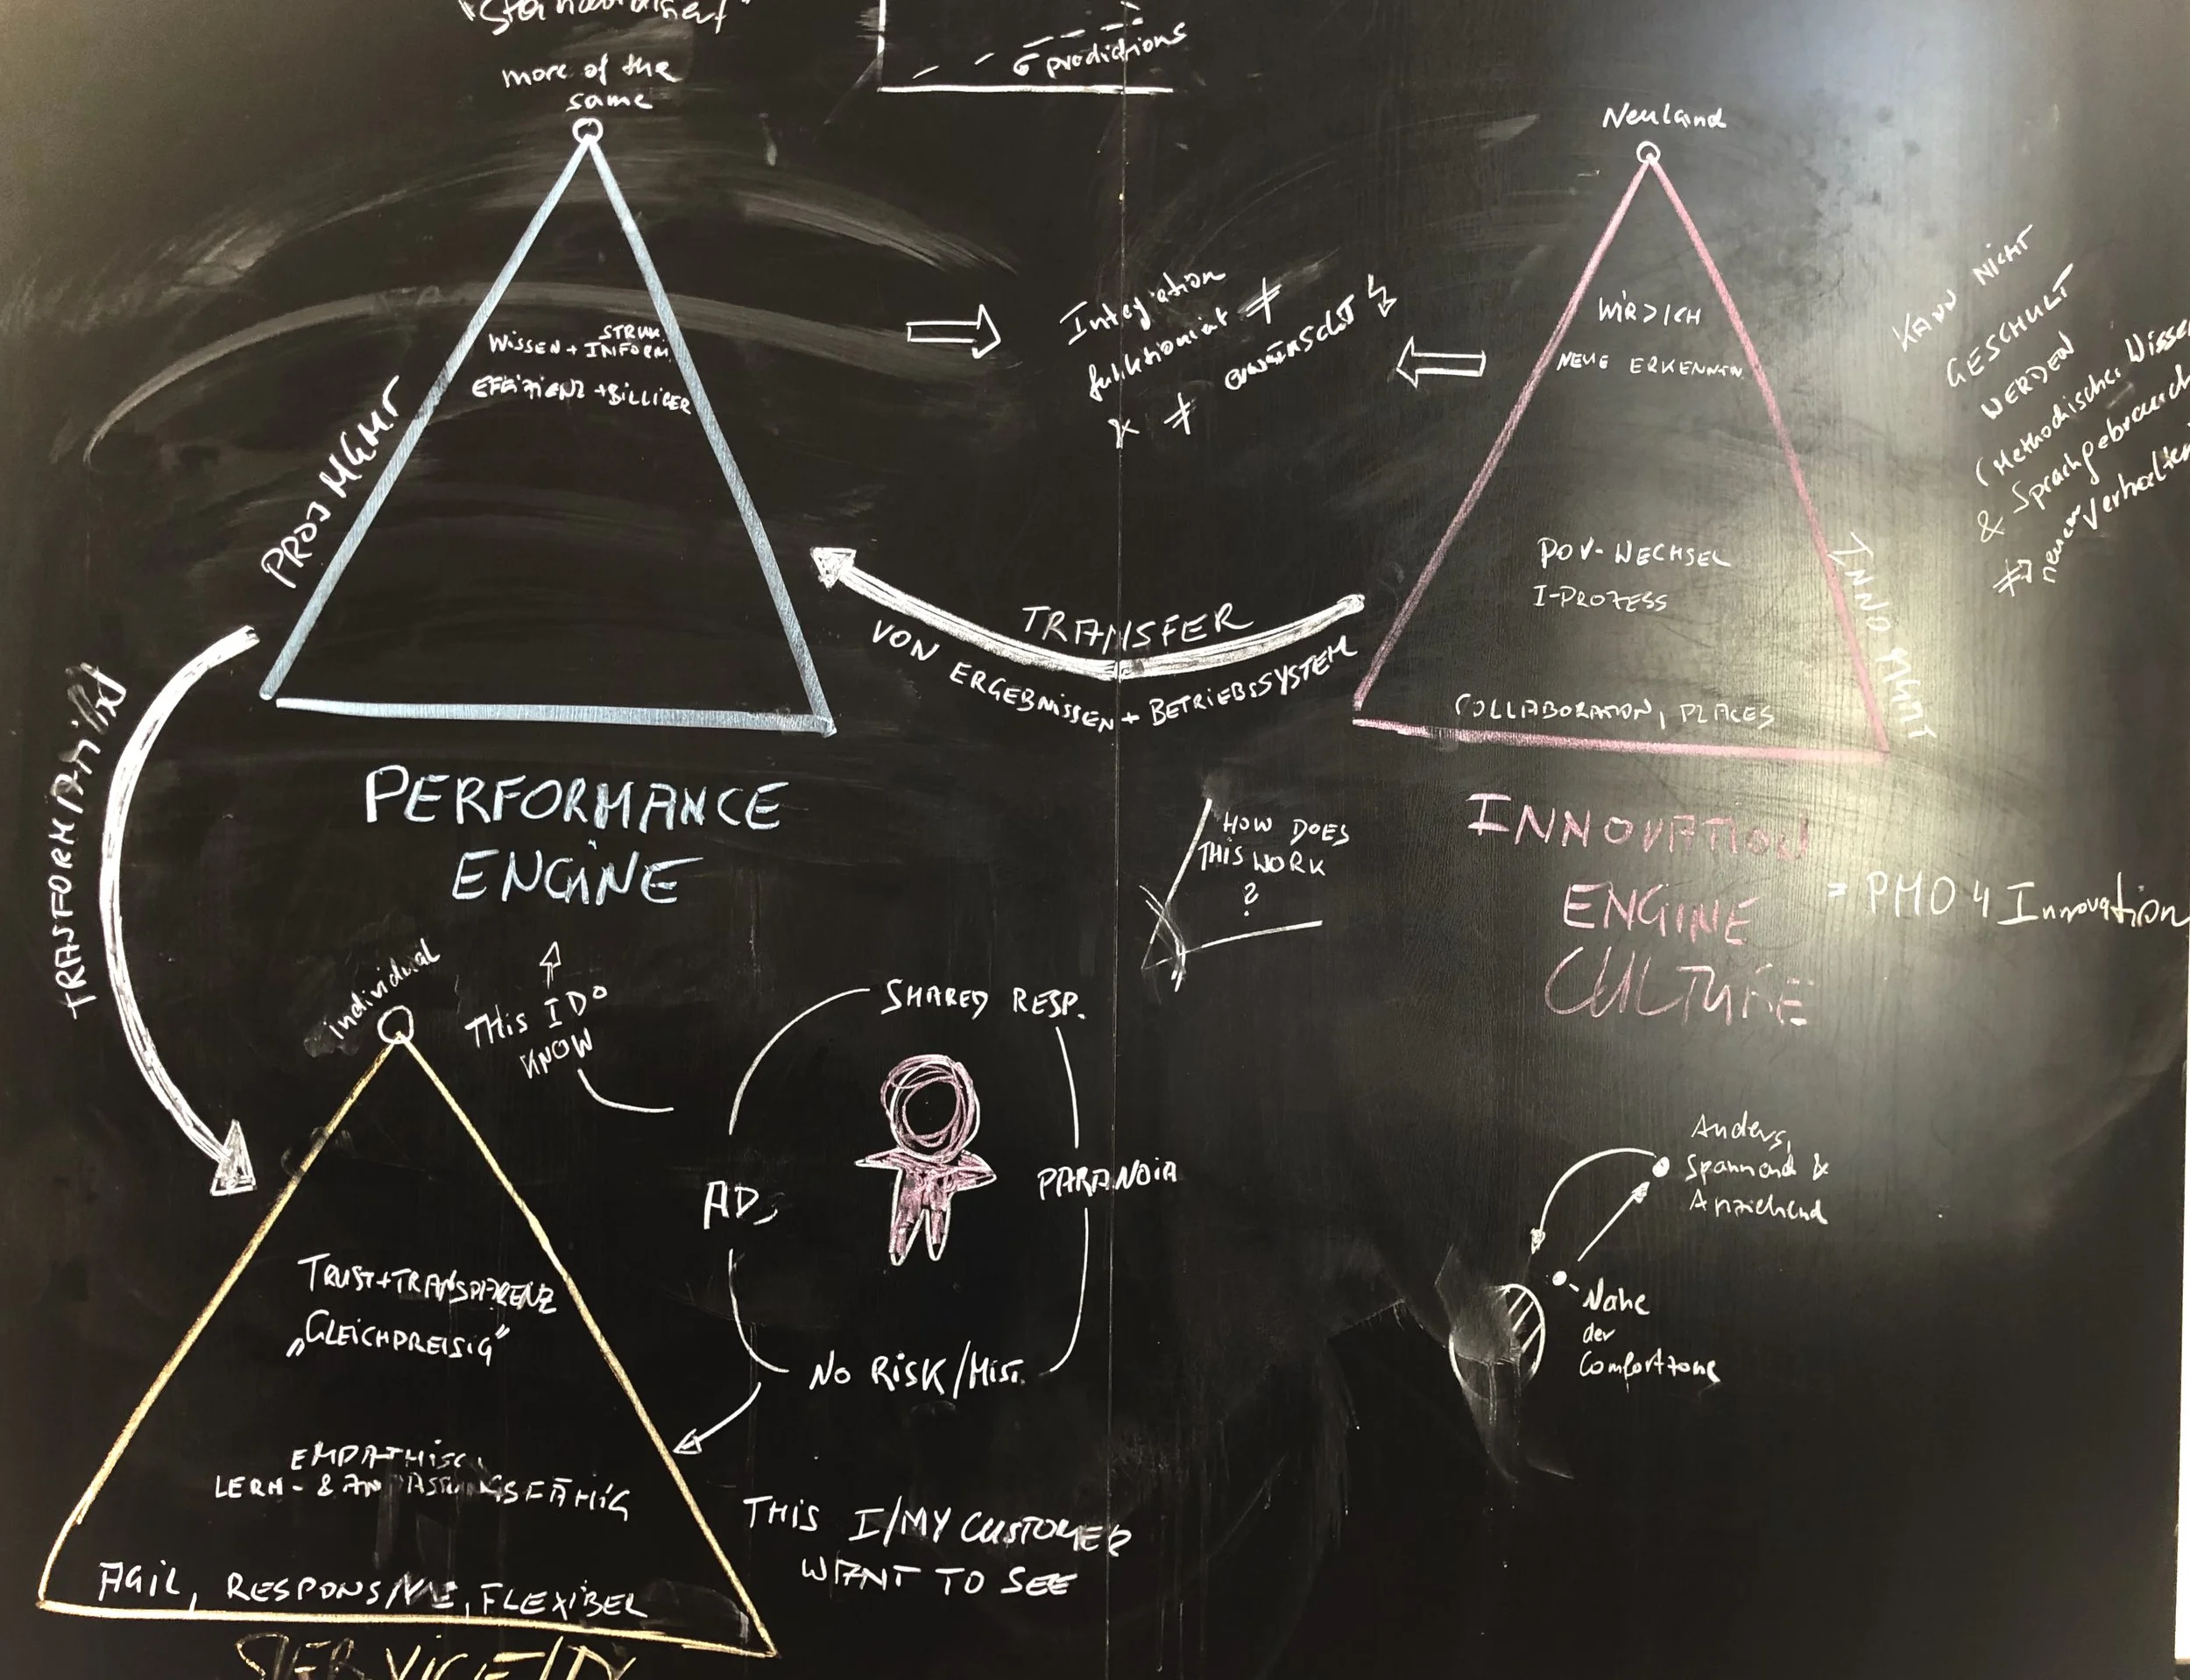 more of the
same
PROJ MGMT
STRUK.
WISSEN + INFORM.
EFFIZIENZ + BILLIGER
PERFORMANCE
ENGINE
Integration
funktioniert ≠
erwünscht
TRANSFER
VON ERGEBNISSEN + BETRIEBSSYSTEM
Neuland
WIR > ICH
NEUE ERKENNTN.
POV-WECHSEL
I-PROZESS
COLLABORATION, PLACES
INNO MGMT
INNOVATION
ENGINE
CULTURE
= PMO 4 Innovation
KANN NICHT
GESCHULT
WERDEN
(Methodisches Wissen
& Sprachgebrauch
neuem Verhalten
HOW DOES
THIS WORK
?
individual
THIS I DO
KNOW
SHARED RESP.
PARANOIA
NO RISK/MIST.
AD
TRUST+TRANSPARENZ
„GLEICHPREISIG"
EMPATHISCH
LERN- & ANPASSUNGSFÄHIG
AGIL, RESPONSIVE, FLEXIBEL
THIS I/MY CUSTOMER
WANT TO SEE
Anders,
Spannend &
Anziehend
Nahe
der
Comfortzone